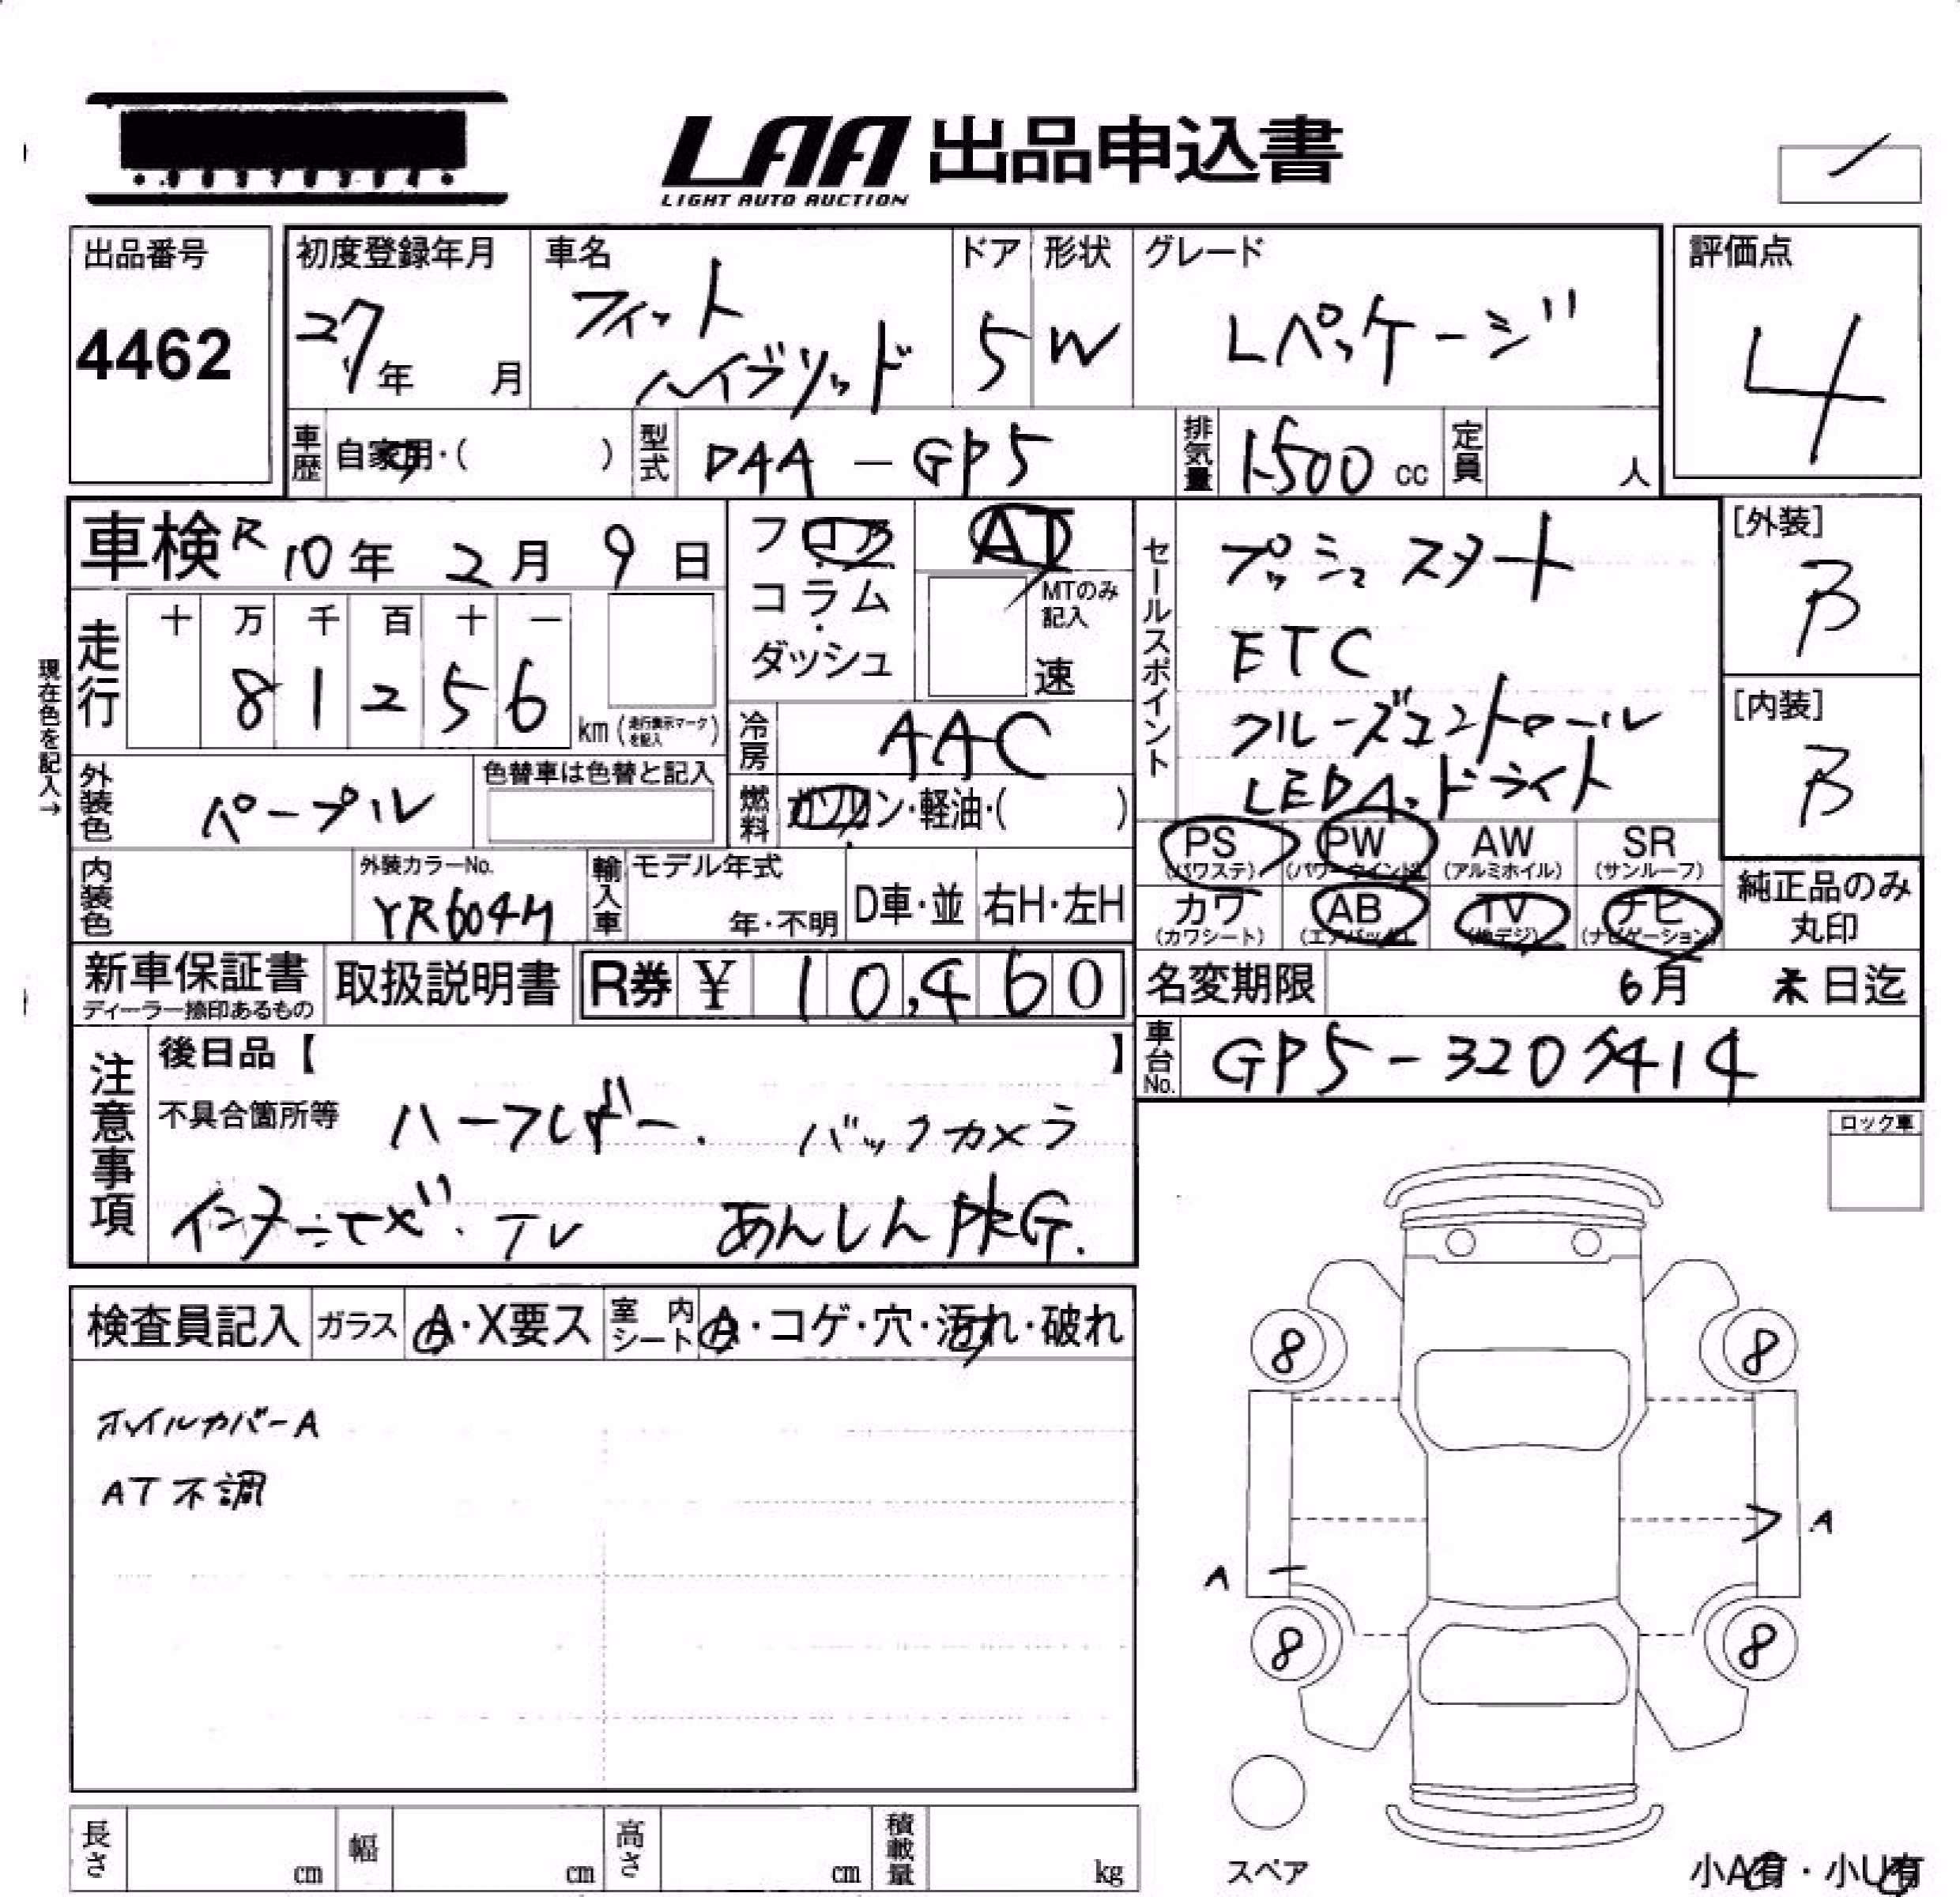 LAA 出品申込書
LIGHT AUTO AUCTION
出品番号
4462
初度登録年月
27年 月
車名
フィット
ハイブリッド
ドア
5
形状
W
グレード
Lパッケージ
評価点
4
車歴 自家用・( )
型式 DAA-GP5
排気量 1500 cc
定員 人
車検 R10年 2月 9日
走行
十 万 千 百 十 一
8 1 2 5 6
km (走行表示マークを記入)
現在色を記入→
フロア
コラム
・
ダッシュ
AT
MTのみ
記入
速
冷房 AAC
燃料 ガソリン・軽油・( )
セールスポイント
プッシュスタート
ETC
クルーズコントロール
LEDヘッドライト
[外装]
B
[内装]
B
外装色 パープル
色替車は色替と記入
内装色
外装カラーNo.
YR604M
輸入車
モデル年式
年・不明
D車・並
右H・左H
PS (パワステ)
PW (パワーウインド)
AW (アルミホイル)
SR (サンルーフ)
カワ (カワシート)
AB (エアバッグ)
TV (地デジ)
ナビ (ナビゲーション)
純正品のみ
丸印
新車保証書
ディーラー捺印あるもの
取扱説明書
R券 ¥ 10,460
名変期限 6月 末日迄
車台No. GP5-320
414
注意事項
後日品【 】
不具合箇所等 ハーフレザー. バックカメラ
インターナビ・TV あんしんPKG.
ロック車
検査員記入
ガラス A・X要ス
室内シート A・コゲ・穴・汚れ・破れ
ホイルカバーA
AT不調
8
8
A
A
8
8
スペア
小A有・小U有
長さ cm
幅 cm
高さ cm
積載量 kg